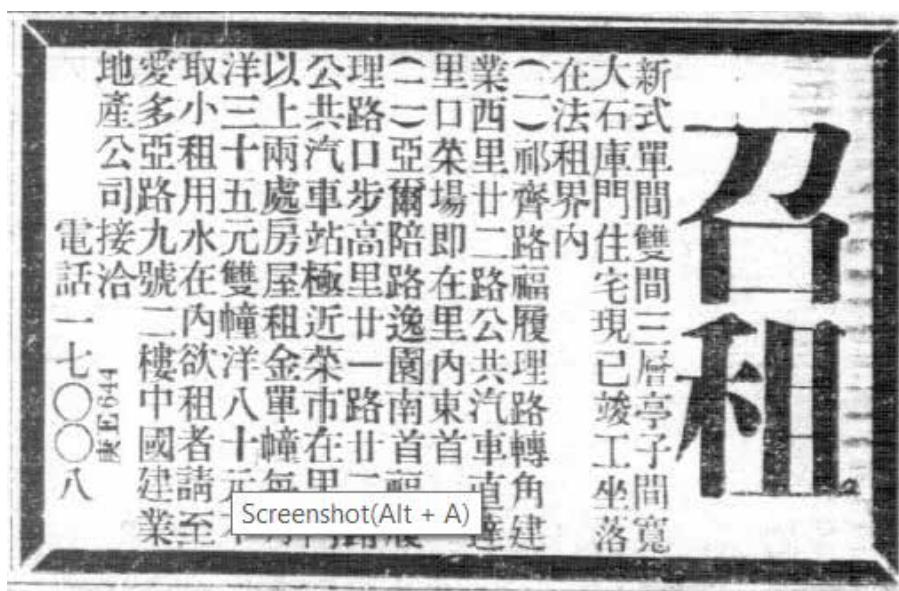 召租
新式單間雙間三層亭子間寬
大石庫門住宅現已竣工坐落
在法租界內
(一)祁齊路福履理路轉角建
業西里廿二路公共汽車直達
里口菜場即在里內東首
(二)亞爾陪路逸園南首福履
理路口步高里廿一路廿二路
公共汽車站極近菜市在里
以上兩處房屋租金單幢每
洋三十五元雙幢洋八十元
取小租用水在內欲租者請至
愛多亞路九號二樓中國建業
地產公司接洽
E644
電話一七〇〇八
Screenshot(Alt + A)